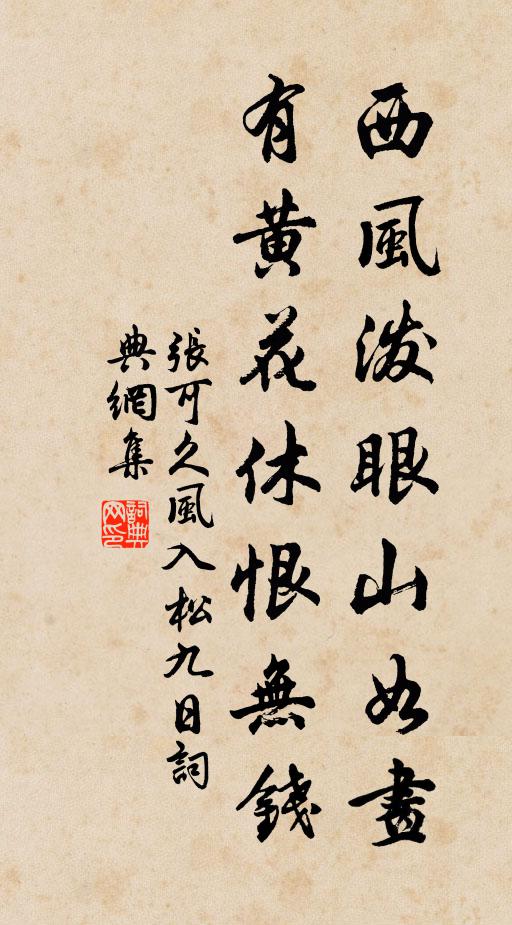 西風潑眼山如畫
有黃花休恨無錢
張可久風入松九日詞
典網集
詞典网印